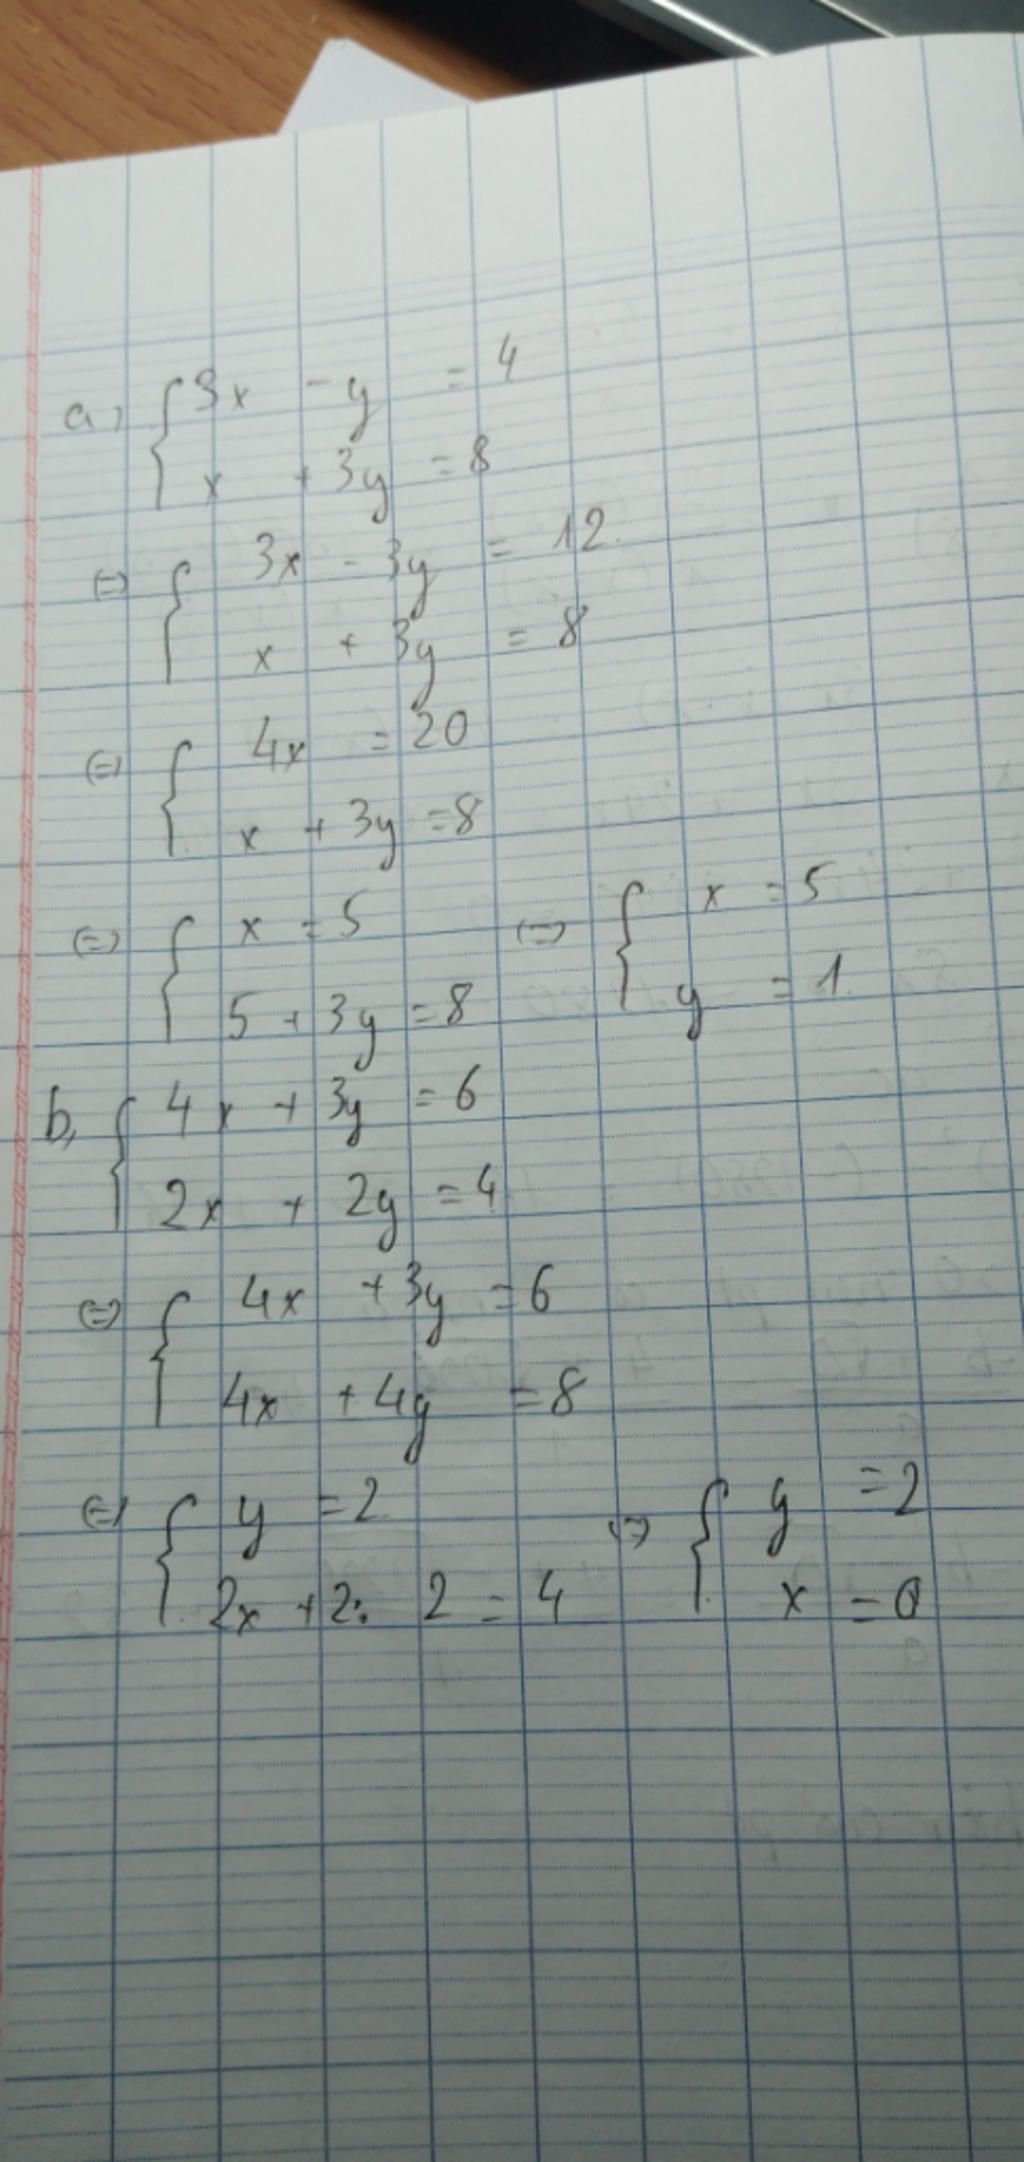 a, { 3x - y = 4
x + 3y = 8
⇔ { 3x - 3y = 12
x + 3y = 8
⇔ { 4x = 20
x + 3y = 8
⇔ { x = 5 ⇔ { x = 5
5 + 3y = 8 y = 1
b, { 4x + 3y = 6
2x + 2y = 4
⇔ { 4x + 3y = 6
4x + 4y = 8
⇔ { y = 2 ⇔ { y = 2
2x + 2. 2 = 4 x = 0